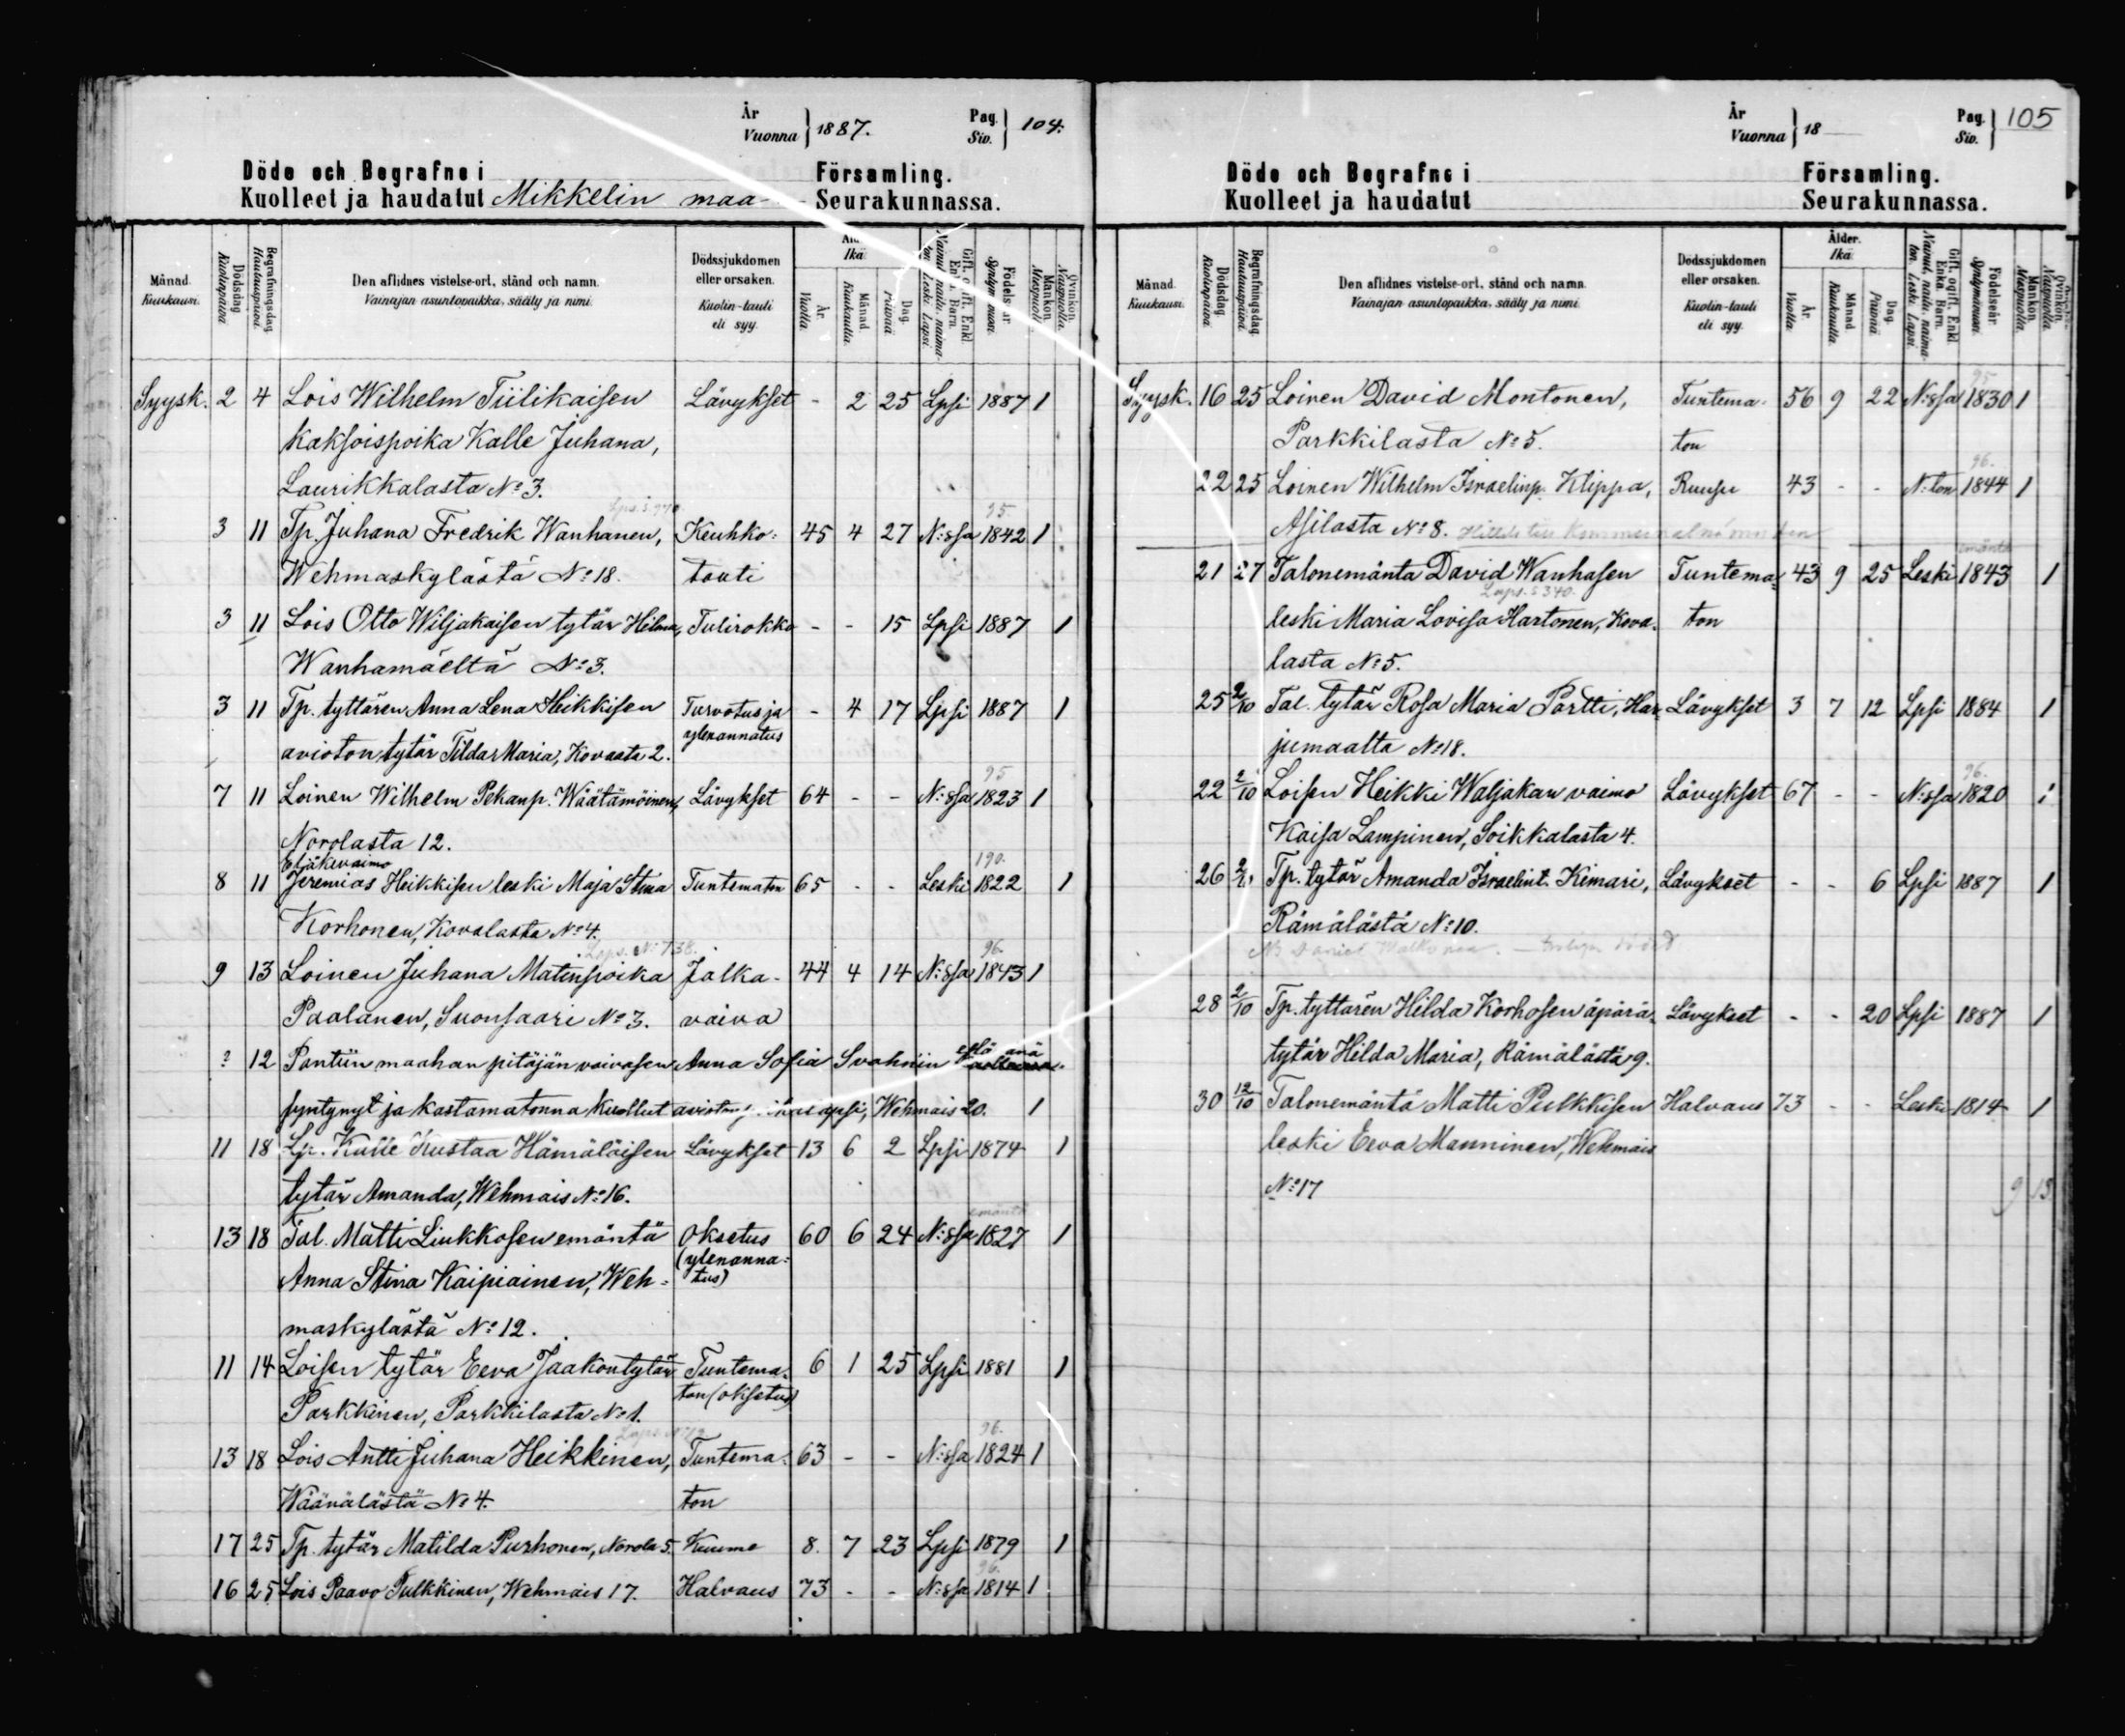 År
Vuonna } 1887.
Pag.
Siv. } 104.
Döde och Begrafne i Församling.
Kuolleet ja haudatut Mikkelin maa- Seurakunnassa.
Månad. Kuukausi.
Dödsdag. Kuolinpäivä.
Begrafningsdag. Hautauspäivä.
Den aflidnes vistelse-ort, stånd och namn.
Vainajan asuntopaikka, sääty ja nimi.
Dödssjukdomen eller orsaken.
Kuolin-tauti eli syy.
Ikä.
År. Vuotta.
Månad. Kuukautta.
Dag. Päivää.
Gift, ogift, Enkl. Enka. Barn.
Nainut, naitu, naimaton. Leski. Lapsi.
Födelseår. Syntymävuosi.
Mankön. Miespuolia.
Qvinkön. Naispuolia.
Syysk. 2 4 Lois Wilhelm Tiilikaisen Lävykset - 2 25 Lpsi 1887 1
kaksoispoika Kalle Juhana,
Laurikkalasta No 3.
95.
3 11 Tp. Juhana Fredrik Wanhanen, Keuhko- 45 4 27 N:ssa 1842 1
Wehmaskylästä No 18. tauti
3 11 Lois Otto Wiljakaisen tytär Hilma, Tulirokko - - 15 Lpsi 1887 1
Wanhamäeltä No 3.
3 11 Tp. tyttären Anna Lena Heikkisen Turvotus ja - 4 17 Lpsi 1887 1
avioton tytär Tilda Maria, Kovasta 2. ylenannatus
95
7 11 Loinen Wilhelm Pekanp. Wäätämöinen, Lävykset 64 - - N:ssa 1823 1
Norolasta 12.
Eläkevaimo 190.
8 11 Jeremias Heikkisen leski Maja Stina Tuntematon 65 - - Leski 1822 1
Korhonen, Kovalasta No 4.
96.
9 13 Loinen Juhana Matinpoika Jalka- 44 4 14 N:ssa 1843 1
Paalanen, Suonsaari No 3. vaiva
? 12 Pantiin maahan pitäjän vaivasen Anna Sofia Svahnin
syntynyt ja kastamatonna kuollut Wehmais 20. 1
11 18 Lp. Kalle Kustaa Hämäläisen Lävykset 13 6 2 Lpsi 1874 1
tytär Amanda, Wehmais No 16.
emäntä
13 18 Tal. Matti Liukkosen emäntä Oksetus 60 6 24 N:ssa 1827 1
Anna Stina Kaipiainen, Weh- (ylenanna-
tus)
maskylästä No 12.
11 14 Loisen tytär Eeva Jaakontytär Tuntema- 6 1 25 Lpsi 1881 1
Parkkinen, Parkkilasta No 1. ton (oksetus)
96.
13 18 Lois Antti Juhana Heikkinen, Tuntema- 63 - - N:ssa 1824 1
Wäänälästä No 4. ton
17 25 Tp. tytär Matilda Purhonen, Norola 5. Kuume 8. 7 23 Lpsi 1879 1
96.
16 25 Lois Paavo Pulkkinen, Wehmais 17. Halvaus 73 - - N:ssa 1814 1
År
Vuonna } 18
Pag.
Siv. } 105
Döde och Begrafne i Församling.
Kuolleet ja haudatut Seurakunnassa.
Månad. Kuukausi.
Dödsdag. Kuolinpäivä.
Begrafningsdag. Hautauspäivä.
Den aflidnes vistelse-ort, stånd och namn.
Vainajan asuntopaikka, sääty ja nimi.
Dödssjukdomen eller orsaken.
Kuolin-tauti eli syy.
Ålder. Ikä.
År. Vuotta.
Månad. Kuukautta.
Dag. Päivää.
Gift, ogift, Enkl. Enka. Barn.
Nainut, naitu, naimaton. Leski. Lapsi.
Födelseår. Syntymävuosi.
Mankön. Miespuolia.
Qvinkön. Naispuolia.
95
Syysk. 16 25 Loinen David Montonen, Tuntema- 56 9 22 N:ssa 1830 1
Parkkilasta No 5. ton
96.
22 25 Loinen Wilhelm Israelinp. Klippa, Ruusu 43 - - N:ton 1844 1
Asilasta No 8.
emäntä
21 27 Talonemäntä David Wanhasen Tuntema- 43 9 25 Leski 1843 1
leski Maria Lovisa Hartonen, Kova- ton
lasta No 5.
25 2/10 Tal. tytär Rosa Maria Partti, Har- Lävykset 3 7 12 Lpsi 1884 1
jumaalta No 18.
96.
22 2/10 Loisen Heikki Waljakan vaimo Lävykset 67 - - N:ssa 1820 1
Kaisa Lampinen, Soikkalasta 4.
26 Tp. tytär Amanda Israelint. Kimari, Lävykset - - 6 Lpsi 1887 1
Rämälästä No 10.
28 2/10 Tp. tyttären Hilda Korhosen äpärä- Lävykset - - 20 Lpsi 1887 1
tytär Hilda Maria, Rämälästä 9.
30 12/10 Talonemäntä Matti Pulkkisen Halvaus 73 - - Leski 1814 1
leski Eeva Manninen, Wehmais
No 17
9 13